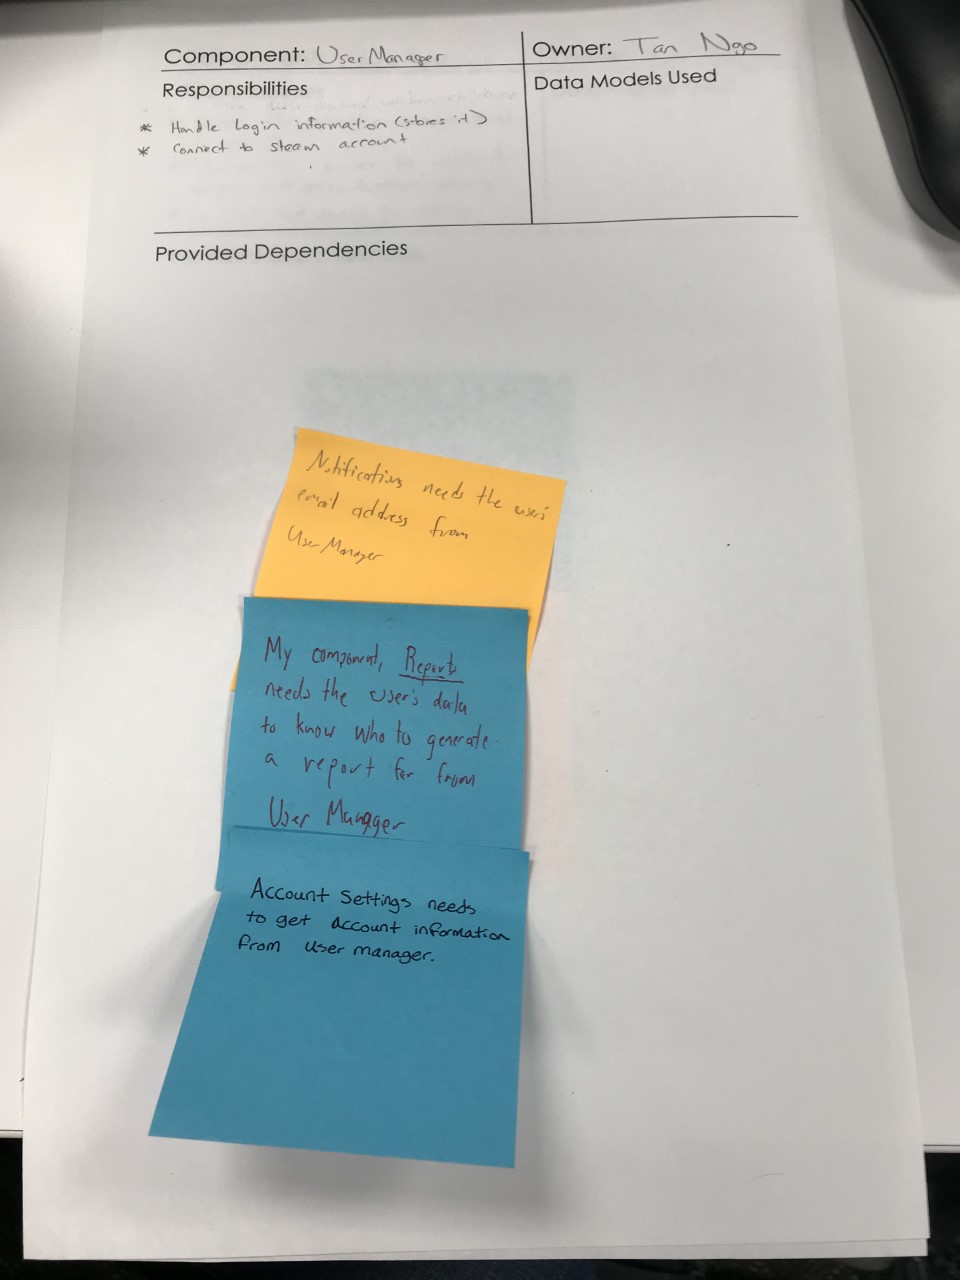 Component: User Manager
Owner: Tan Ngo
Responsibilities
Data Models Used
* Handle Login information (stores it)
* Connect to steam account
Provided Dependencies
Notifications needs the user's
email address from
User Manager
My component, Reports
needs the user's data
to know who to generate
a report for from
User Manager
Account Settings needs
to get account information
from user manager.